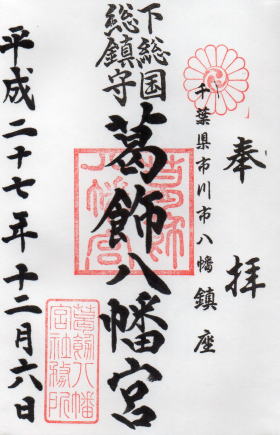 奉拝
千葉県市川市八幡鎮座
下総国
総鎮守
葛飾八幡宮
葛飾
八幡宮
平成二十七年十二月六日
葛飾八幡
宮社務所